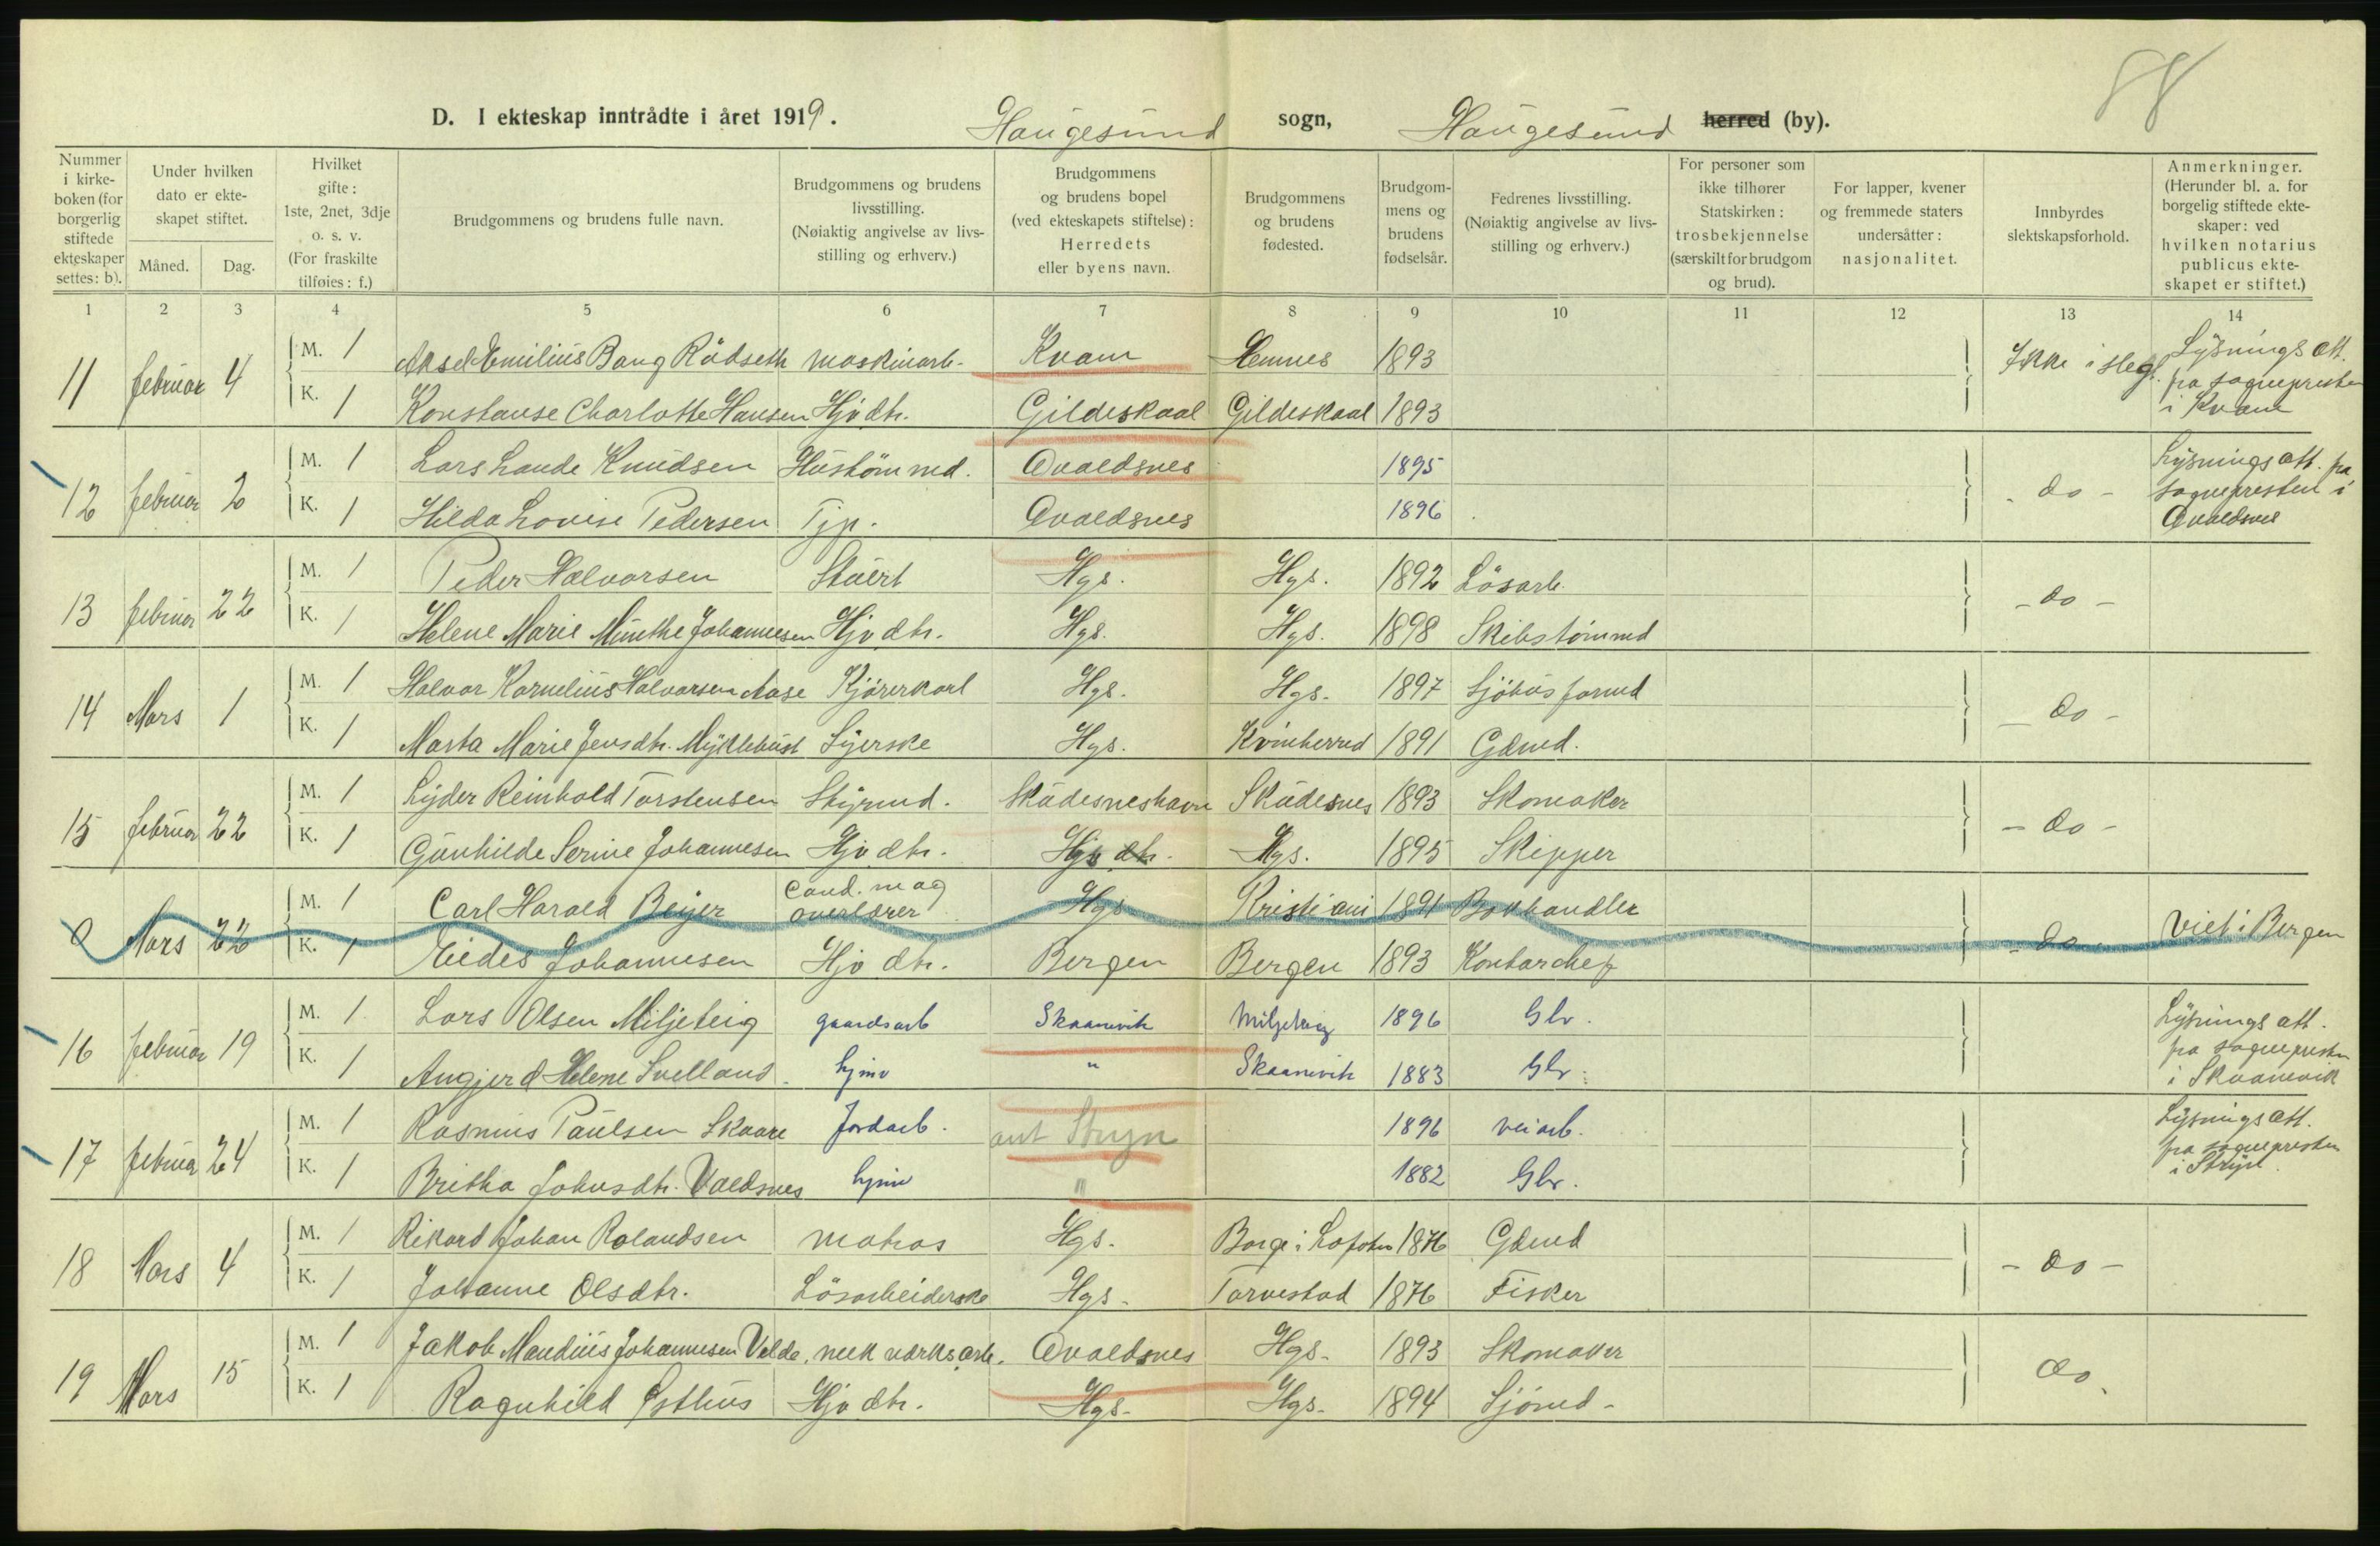 88
D. I ekteskap inntrådte i året 1919. Haugesund sogn, Haugesund herred (by).
Nummer i kirkeboken (for borgerlig stiftede ekteskaper settes: b).
Under hvilken dato er ekteskapet stiftet.
Måned. Dag.
Hvilket gifte: 1ste, 2net, 3dje o. s. v. (For fraskilte tilføies: f.)
Brudgommens og brudens fulle navn.
Brudgommens og brudens livsstilling. (Nøiaktig angivelse av livsstilling og erhverv.)
Brudgommens og brudens bopel (ved ekteskapets stiftelse): Herredets eller byens navn.
Brudgommens og brudens fødested.
Brudgommens og brudens fødselsår.
Fedrenes livsstilling. (Nøiaktig angivelse av livsstilling og erhverv.)
For personer som ikke tilhører Statskirken: trosbekjennelse (særskilt for brudgom og brud).
For lapper, kvener og fremmede staters undersåtter: nasjonalitet.
Innbyrdes slektskapsforhold.
Anmerkninger. (Herunder bl. a. for borgelig stiftede ekteskaper: ved hvilken notarius publicus ekteskapet er stiftet.)
1 2 3 4 5 6 7 8 9 10 11 12 13 14
11 februar 4 M. 1 Aksel Emilius Bang Rødseth maskinarb. Kvam Hemnes 1893 Ikke i slegt. Lysningsatt. fra sognepresten i Kvam
K. 1 Konstanse Charlotte Hansen Hjv dtr. Gildeskaal Gildeskaal 1893
12 februar 2 M. 1 Lars Lande Knudsen Hustømmd. Avaldsnes 1895 - do - Lysningsatt. fra sognepresten i Avaldsnes
K. 1 Hilda Lovise Pedersen Tjp. Avaldsnes 1896
13 februar 22 M. 1 Peder Halvorsen Stuert Hgs. Hgs. 1892 Løsarb. - do -
K. 1 Helene Marie Munthe Johannesen Hjv dtr. Hgs. Hgs. 1898 Skibstømmd
14 Mars 1 M. 1 Halvor Kornelius Halvorsen Aase Kjørerkarl Hgs. Hgs. 1897 Sjøhusformd - do -
K. 1 Marta Marie Jensdtr. Myklebust Syerske Hgs. Kvinherred 1891 Gdmd.
15 februar 22 M. 1 Lyder Reinhold Torstensen Styrmd. Skudesneshavn Skudesnes 1893 Skomaker - do -
K. 1 Gunhilde Serine Johannesen Hjv dtr. Hjv dtr. Hgs. 1895 Skipper
0 Mars 22 M. 1 Carl Harald Beyer Cand. mag overlærer Hgs Kristiani 1891 Bokhandler - do - Viet i Bergen
K. 1 Johannesen Hjv dtr. Bergen Bergen 1893 Kontorchef
16 februar 19 M. 1 Lars Olsen Miljeteig gaardsarb Skaanevik Miljeteig 1896 Gbr. Lysningsatt. fra sognepresten i Skaanevik
K. 1 Angjerd Helene Svelland. hjmv " Skaanevik 1883 Gbr.
17 februar 24 M. 1 Rasmus Paulsen Skaare Jordarb. ant Stryn 1896 veiarb. Lysningsatt. fra sognepresten i Stryn.
K. 1 Britha Johnsdtr. Valdsnes hjmv " 1882 Gbr.
18 Mars 4 M. 1 Rikard Johan Rolandsen matros Hgs. Borge i Lofoten 1876 Gdmd - do -
K. 1 Johanne Olsdtr. Løsarbeiderske Hgs. Torvestad 1876 Fisker
19 Mars 15 M. 1 Jakob Mandius Johannesen Velde. mek værksarb. Avaldsnes Hgs. 1893 Skomaker do.
K. 1 Ragnhild Østhus Hjv dtr. Hgs. Hgs. 1894 Sjømd.